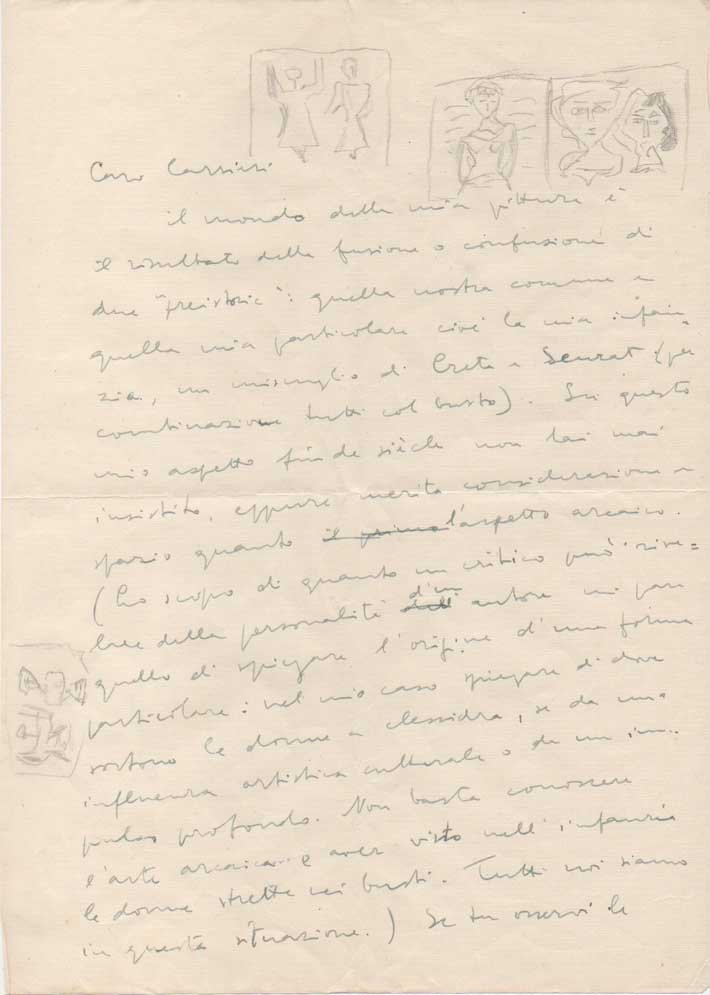 Caro Cassieri
il mondo della mia pittura è
il risultato della fusione o confusione di
due "preistorie": quella nostra comune e
quella mia particolare cioè la mia infan-
zia, un miscuglio di Creta e Seurat (per
combinazione tutti col busto). Su questo
mio aspetto fin de siècle non hai mai
insistito, eppure merita considerazione e
spazio quanto il primo l'aspetto arcaico.
(Lo scopo di quanto un critico può rive=
lare della personalità dell' d'un autore mi pare
quello di spiegare l'origine d'una forma
particolare: nel mio caso spiegare di dove
sortono le donne a clessidra, se da un'
influenza artistica culturale o da un im-
pulso profondo. Non basta conoscere
l'arte arcaica e aver visto nell'infanzia
le donne strette nei busti. Tutti noi siamo
in questa situazione.) Se tu osservi le